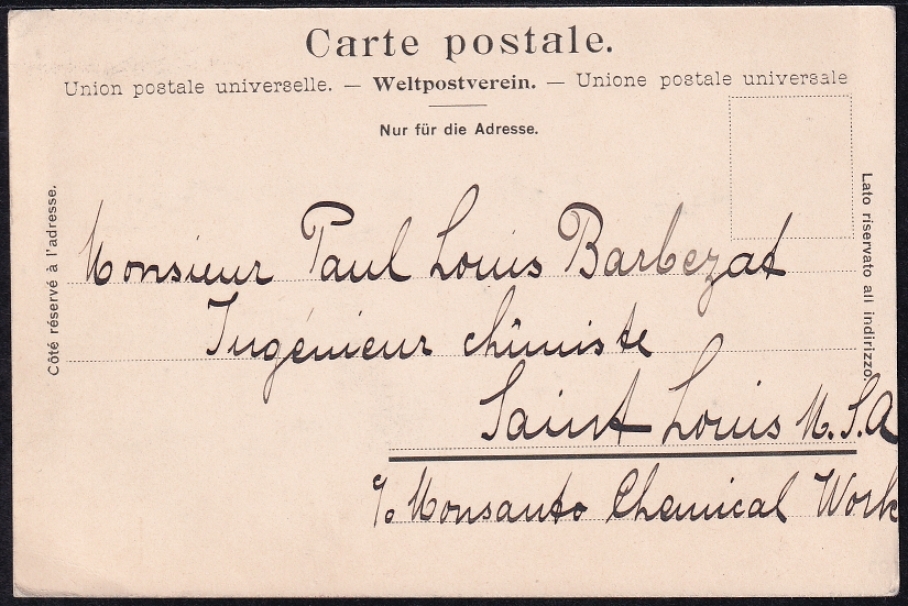 Carte postale.
Union postale universelle. — Weltpostverein. — Unione postale universale
Nur für die Adresse.
Côté réservé à l'adresse.
Lato riservato all indirizzo.
Monsieur Paul Louis Barbezat
Ingénieur chimiste
Saint Louis U.S.A
c/o Monsanto Chemical Work